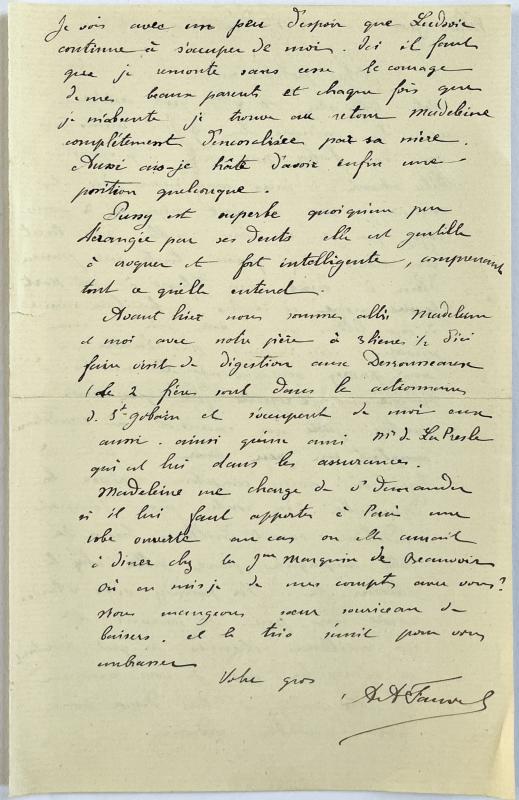 Je vois avec un peu d'espoir que Ludovic
continue à s'occuper de moi. Ici il faut
que je remonte sans cesse le courage
de mes beaux parents et chaque fois que
je m'absente je trouve au retour Madeleine
complètement démoralisée par sa mère.
Aussi ai-je hâte d'avoir enfin une
position quelconque.
Pussy est superbe quoiqu'un peu
dérangée par ses dents elle est gentille
à croquer et fort intelligente, comprenant
tout ce qu'elle entend.
Avant hier nous sommes allés Madeleine
et moi avec notre père à 3 lieues 1/2 d'ici
faire visite de digestion aux
(Les 2 frères sont dans les actionnaires
de St Gobain et s'occupent de moi eux
aussi. ainsi qu'un ami Mr de La Presle
qui est lui dans les assurances.
Madeleine me charge de vs demander
si il lui faut apporter à Paris une
robe ouverte au cas où elle aurait
à dîner chez la Jne Marquise de Beauvoir
Où en suis je de mes comptes avec vous?
Nous mangeons sœur de
baisers. et le trio s'unit pour vous
embrasser
Votre gros
A